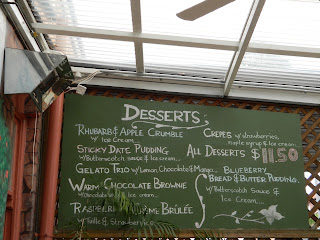 DESSERTS:
RHUBARB & APPLE CRUMBLE
w/ Ice Cream...
STICKY DATE PUDDING
w/ Butterscotch sauce & ice cream...
GELATO TRIO w/ Lemon, Chocolate & Mango...
WARM CHOCOLATE BROWNIE
w/ & ice cream...
BRÛLÉE
w/ Tuille & Strawberries
CREPES w/ strawberries,
maple syrup & ice cream...
ALL DESSERTS $11.50
BLUEBERRY
BREAD & BUTTER PUDDING.
w/ Butterscotch Sauce &
Ice Cream...